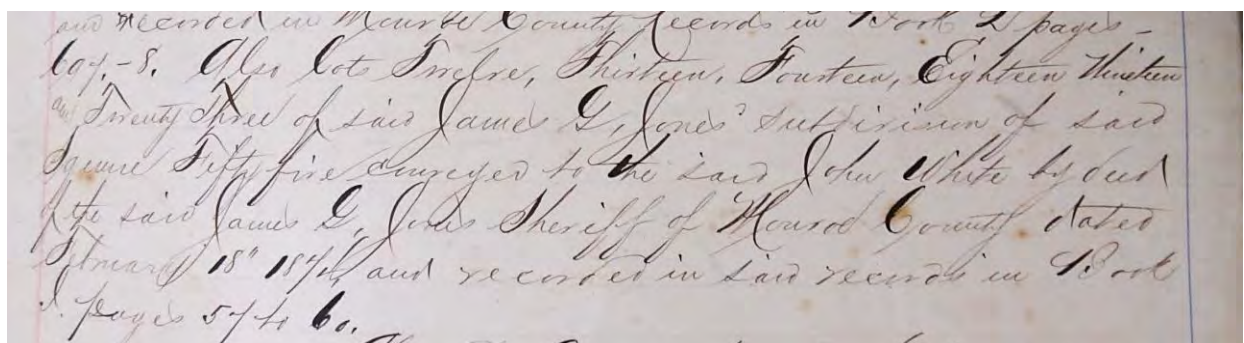 and recorded in Monroe County records in Book pages -
607.-8. Also lots Twelve, Thirteen, Fourteen, Eighteen Nineteen
and Twenty three of said James G, Jones' Subdivision of said
Square Fifty five conveyed to the said John White by deed
of the said James G, Jones Sheriff of Monroe County dated
February 18" and recorded in said records in Book
I. pages 57 to 60.